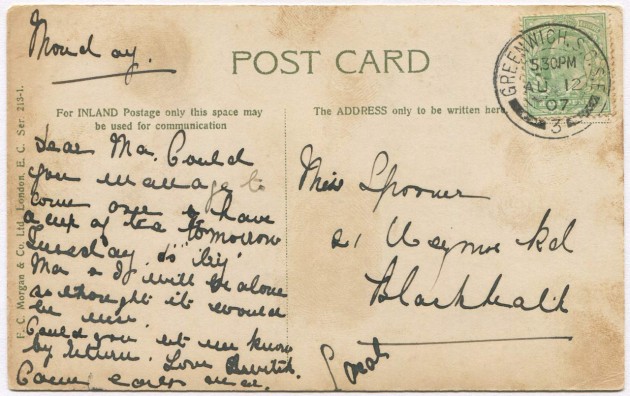 Monday.
POST CARD
GREENWICH. S.O. S.E.
5.30PM
AU 12
07
3
For INLAND Postage only this space may
be used for communication
The ADDRESS only to be written here
F. C. Morgan & Co., Ltd., London, E. C. Ser. 213-1.
Dear Ma. Could
you manage to
come over & have
a cup of tea tomorrow
Tuesday, do "try"
Ma & I will be alone
so thought it would
be nice.
Could you let me know
by return. Love
Come early
Miss Spooner
21 Rd
Blackheath